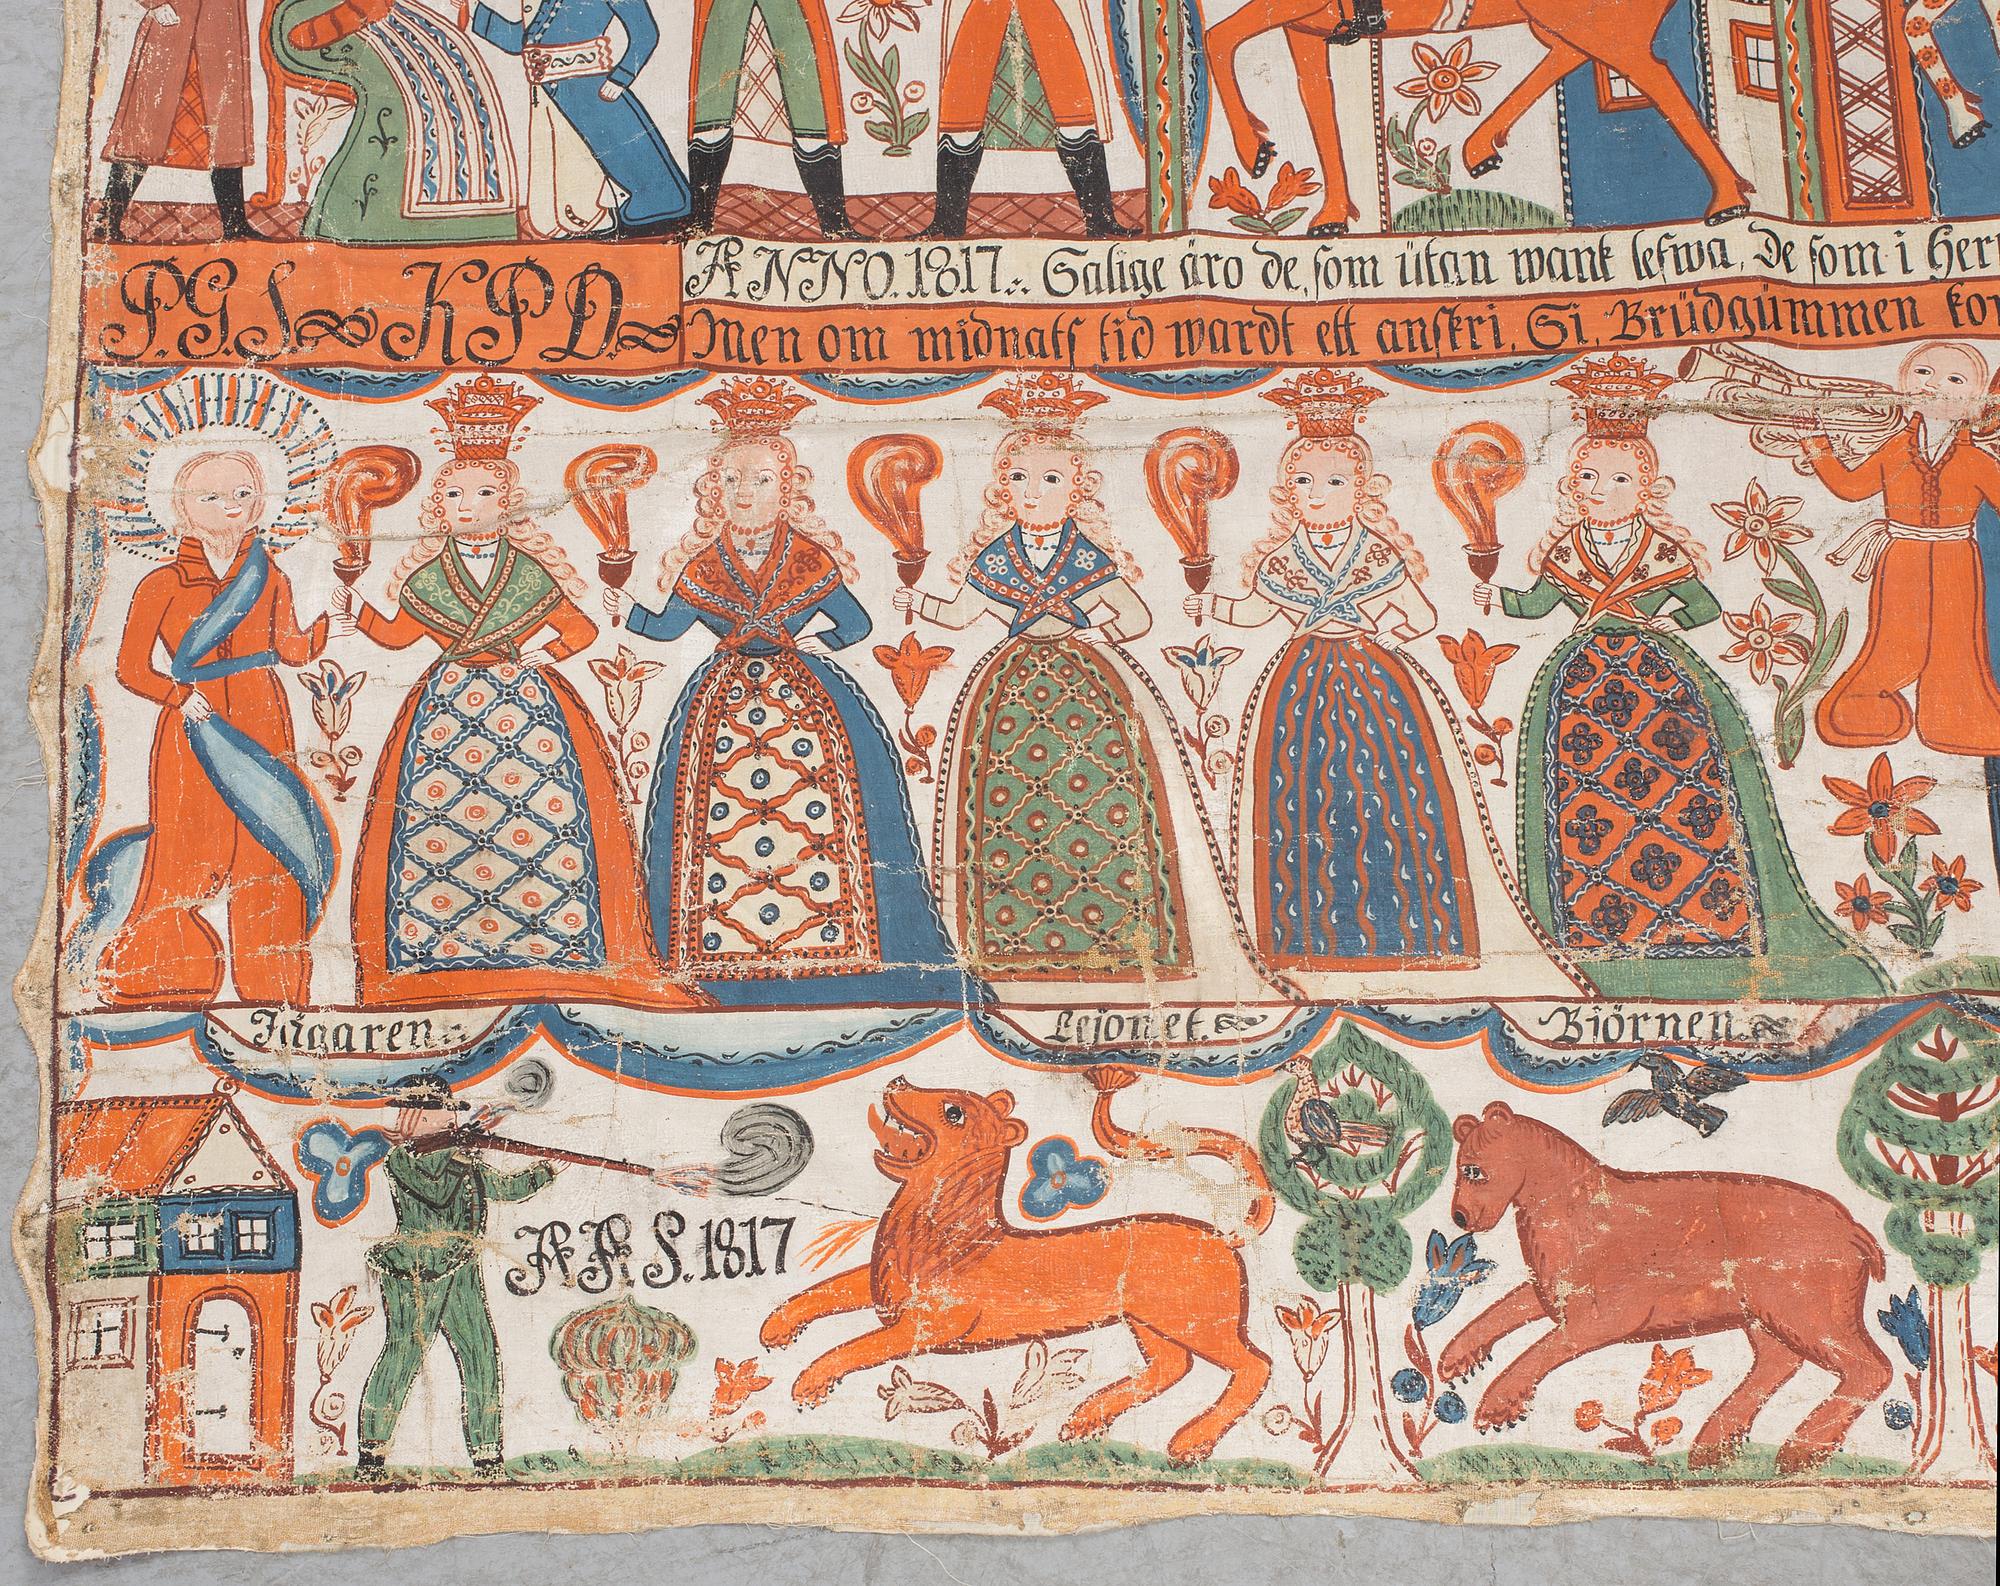 P.G.S. K P D.
ANNO. 1817. Salige äro de, som ütan wank lefwa, De som i Her
Men om midnats tid wardt ett anskri, Si, Brüdgümmen kom
Jägaren.
Lejonet.
Björnen.
A A S. 1817